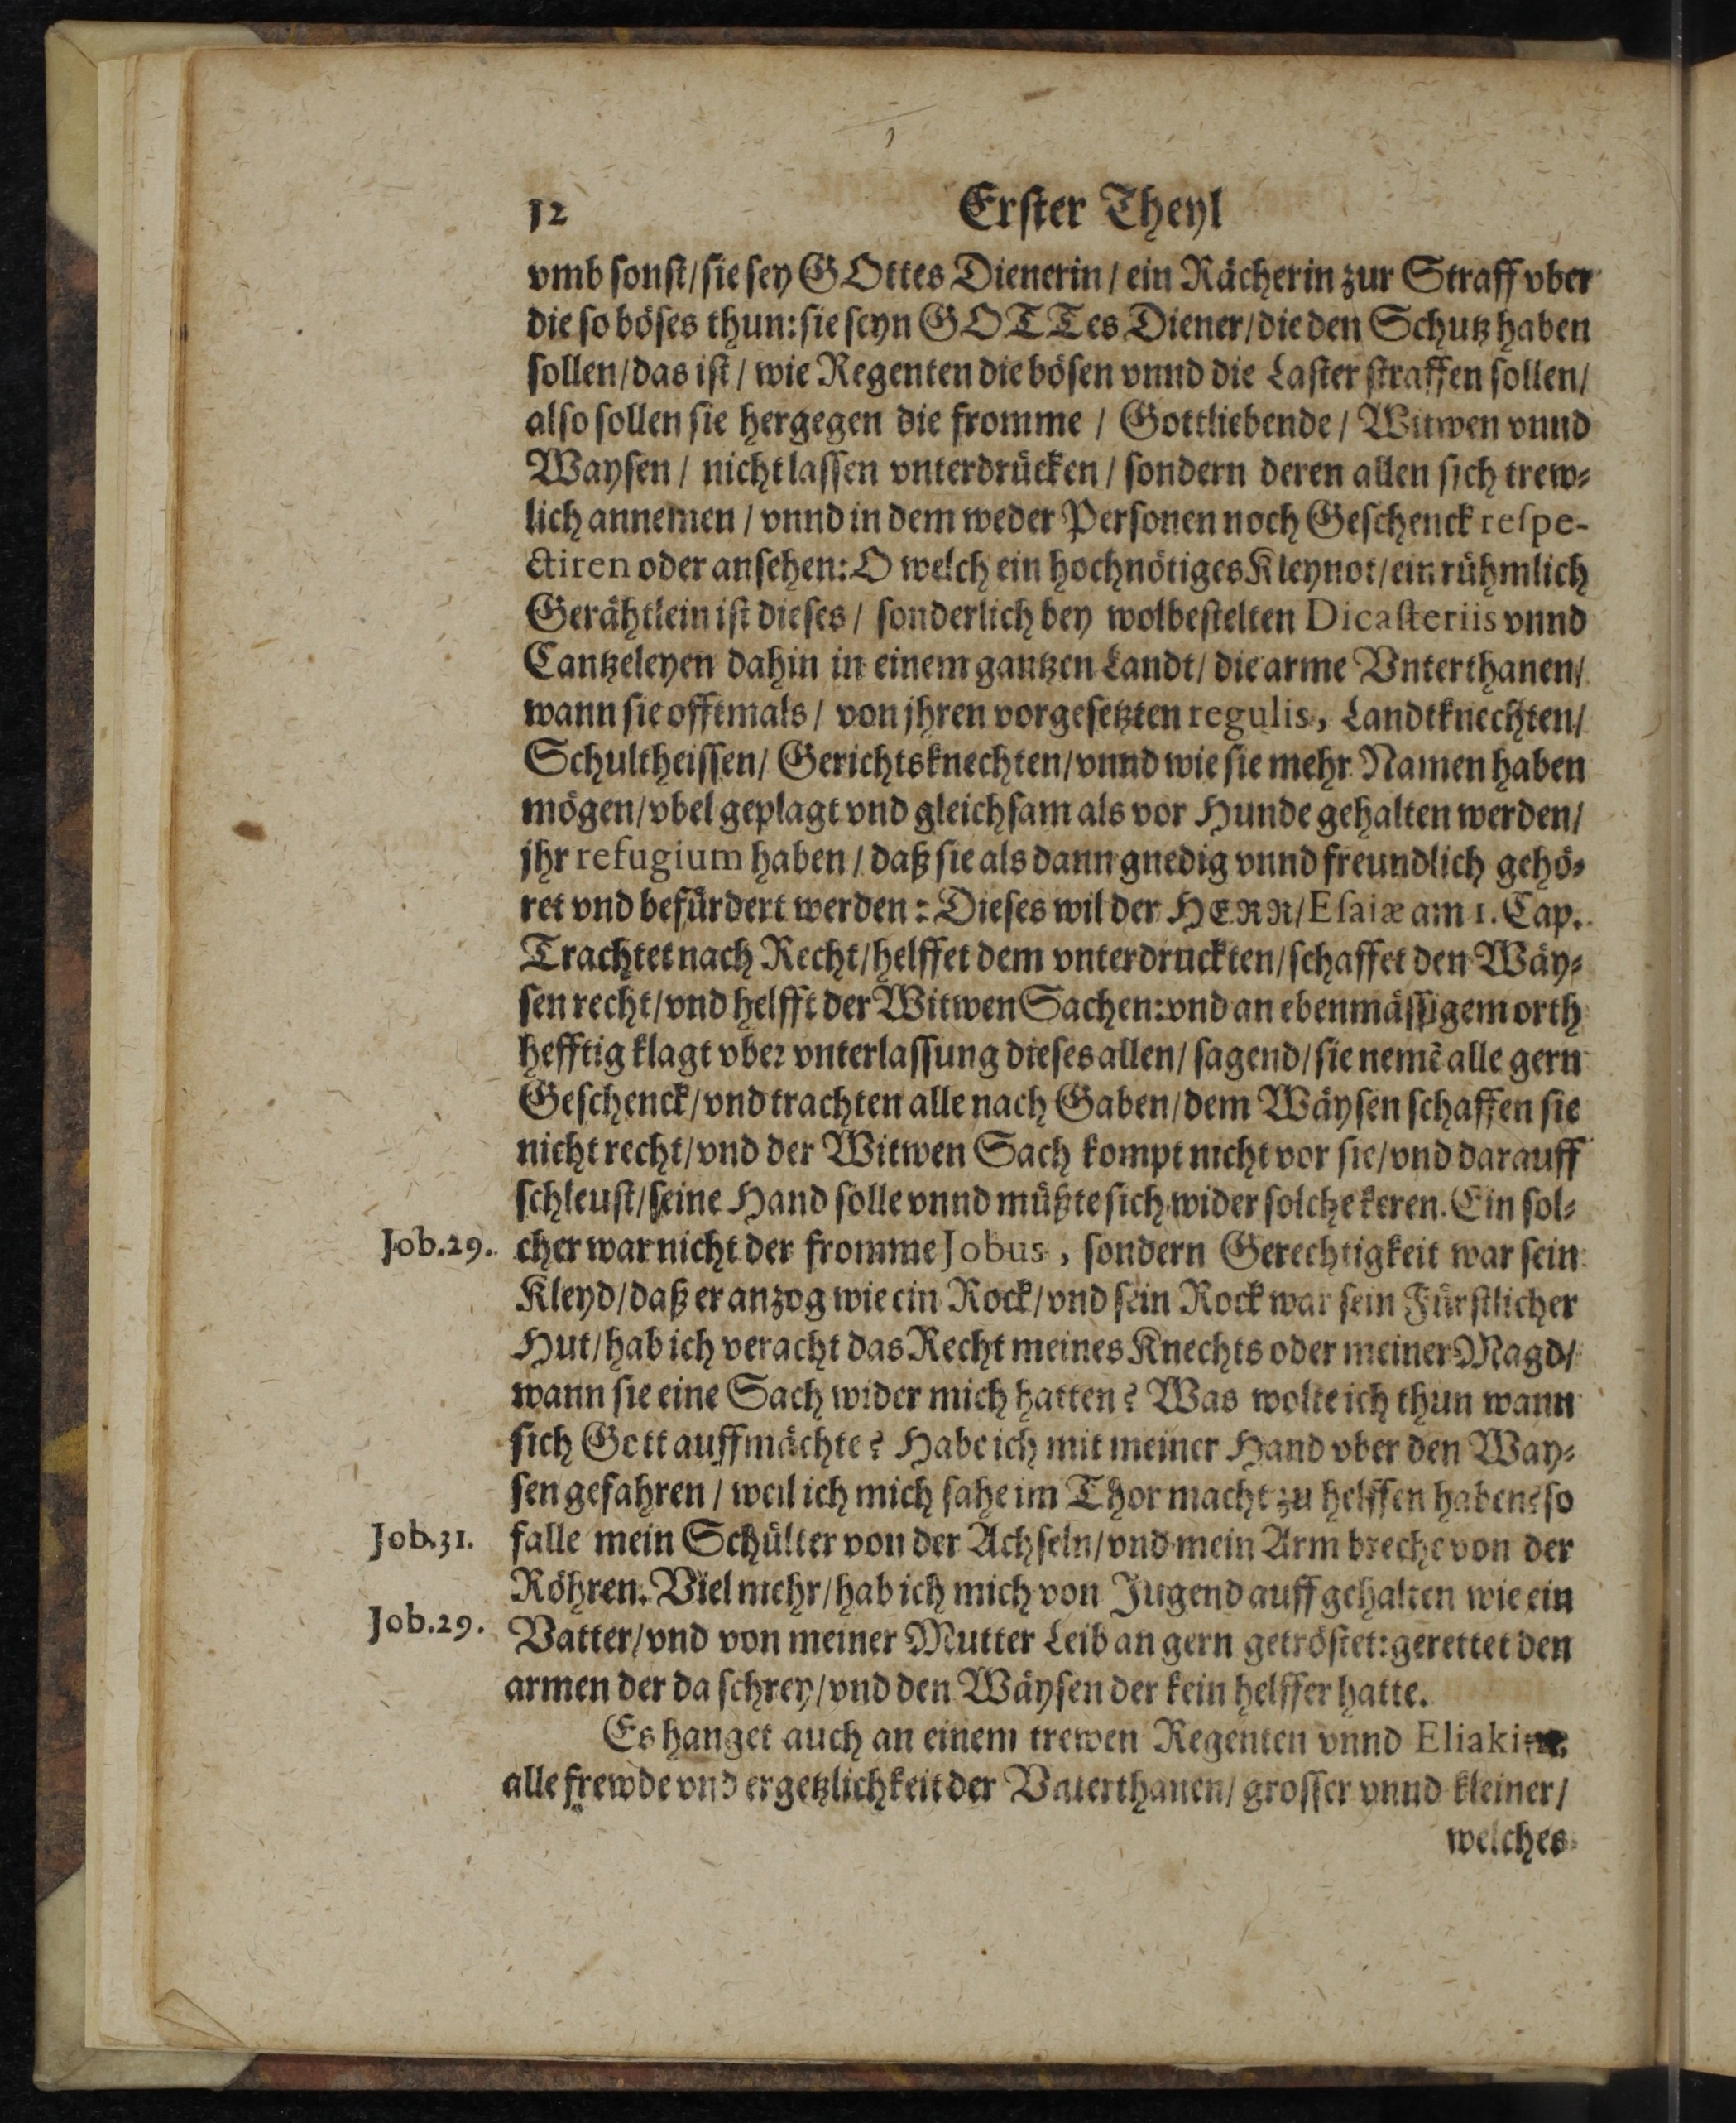 12 Erster Theyl
vmb sonst/ sie sey GOttes Dienerin/ ein Rächerin zur Straff vber
die so böses thun: sie seyn GOTTes Diener/ die den Schutz haben
sollen/ das ist/ wie Regenten die bösen vnnd die Laster straffen sollen/
also sollen sie hergegen die fromme / Gottliebende / Witwen vnnd
Waysen / nicht lassen vnterdrücken / sondern deren allen sich trew-
lich annemen / vnnd in dem weder Personen noch Geschenck respe-
ctiren oder ansehen: O welch ein hochnötiges Kleynot/ ein rühmlich
Gerähtlein ist dieses / sonderlich bey wolbestelten Dicasteriis vnnd
Cantzeleyen dahin in einem gantzen Landt/ die arme Vnterthanen/
wann sie offtmals / von jhren vorgesetzten regulis, Landtknechten/
Schultheissen/ Gerichtsknechten/ vnnd wie sie mehr Namen haben
mögen/ vbel geplagt vnd gleichsam als vor Hunde gehalten werden/
jhr refugium haben / daß sie als dann gnedig vnnd freundlich gehö-
ret vnd befürdert werden: Dieses wil der HERR/ Esaiæ am 1. Cap.
Trachtet nach Recht/ helffet dem vnterdruckten/ schaffet den Wäy-
sen recht/ vnd helfft der Witwen Sachen: vnd an ebenmässigem orth
hefftig klagt vber vnterlassung dieses allen/ sagend/ sie nemẽ alle gern
Geschenck/ vnd trachten alle nach Gaben/ dem Wäysen schaffen sie
nicht recht/ vnd der Witwen Sach kompt nicht vor sie/ vnd darauff
schleust/ seine Hand solle vnnd müßte sich wider solche keren. Ein sol-
Job.29. cher war nicht der fromme Jobus, sondern Gerechtigkeit war sein
Kleyd/ daß er anzog wie ein Rock/ vnd sein Rock war sein Fürstlicher
Hut/ hab ich veracht das Recht meines Knechts oder meiner Magd/
wann sie eine Sach wider mich hatten? Was wolte ich thun wann
sich Gott auffmächte? Habe ich mit meiner Hand vber den Way-
sen gefahren / weil ich mich sahe im Thor macht zu helffen haben? so
Job.31. falle mein Schülter von der Achseln/ vnd mein Arm breche von der
Röhren. Viel mehr/ hab ich mich von Jugend auff gehalten wie ein
Job.29. Vatter/ vnd von meiner Mutter Leib an gern getröstet: gerettet den
armen der da schrey/ vnd den Wäysen der kein helffer hatte.
Es hanget auch an einem trewen Regenten vnnd Eliakim
alle frewde vnd ergetzlichkeit der Vnterthanen/ grosser vnnd kleiner/
welches